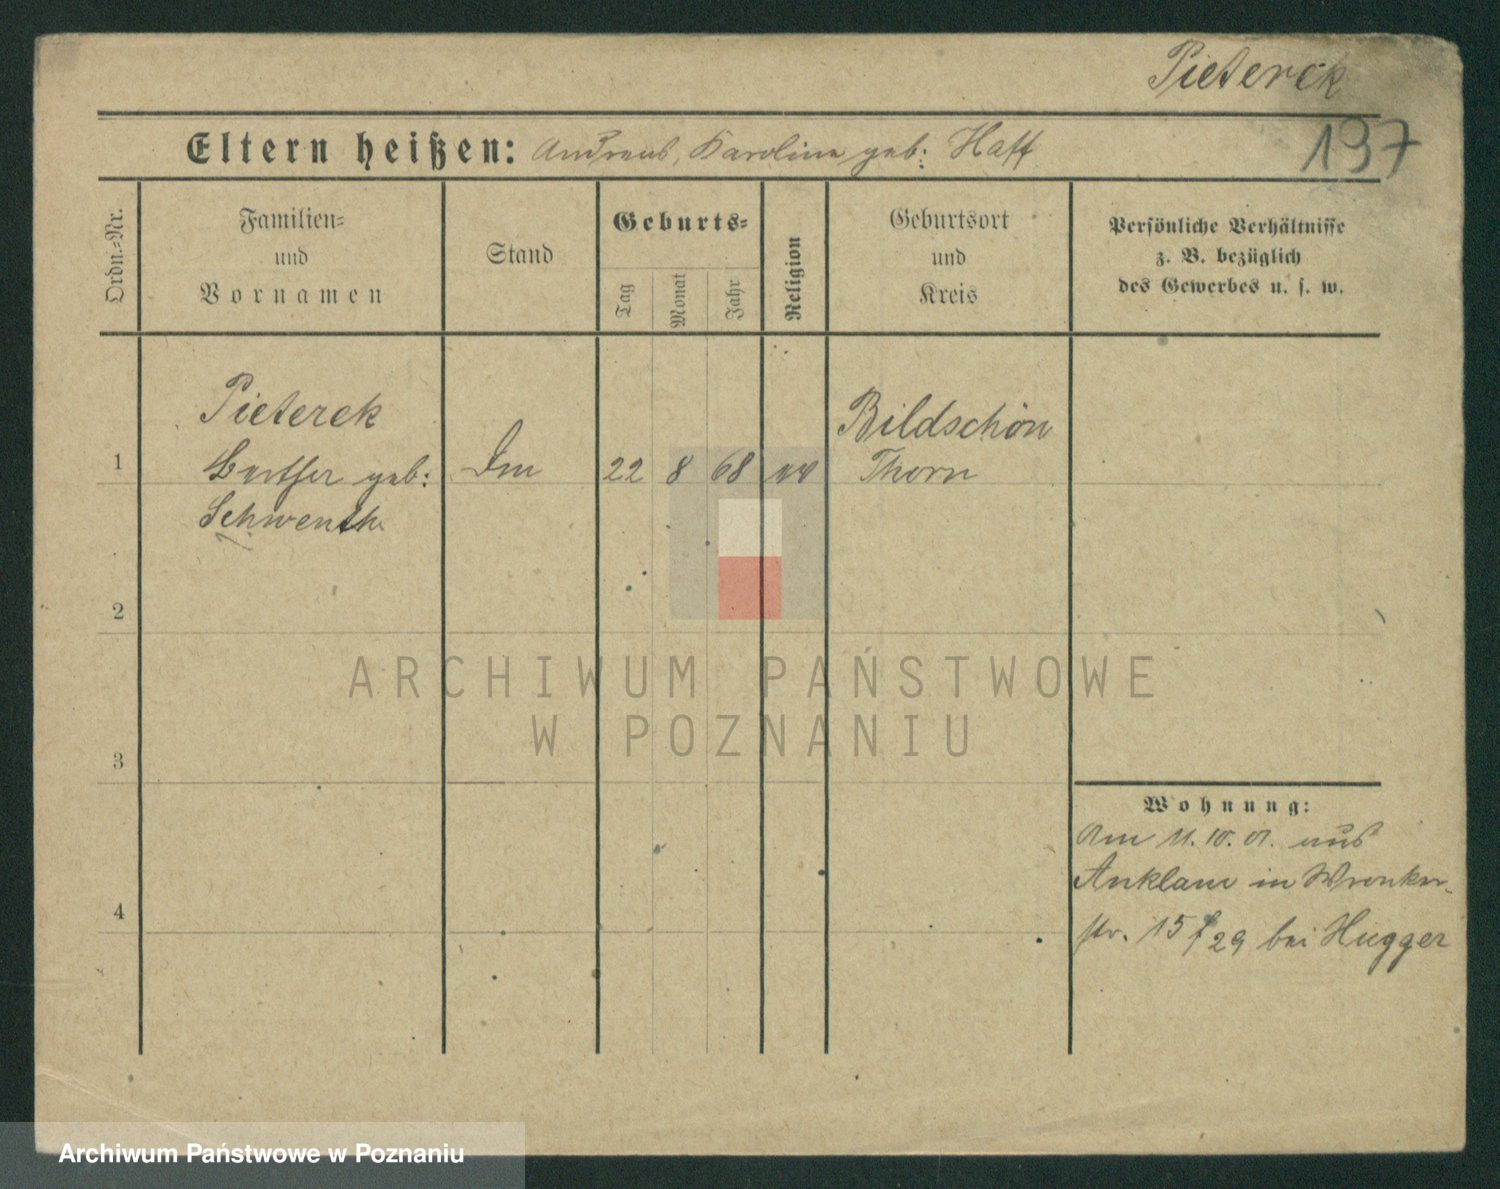 Pieterek
137
Eltern heißen: Andreas, Karoline geb: Haff
Ordn.=Nr.
Familien=
und
Vornamen
Stand
Geburts=
Tag
Monat
Jahr
Religion
Geburtsort
und
Kreis
Persönliche Verhältnisse
z. B. bezüglich
des Gewerbes u. s. w.
Pieterek
1 geb: 22 8 68
Schwenk
Bildschön
Thorn
2
ARCHIWUM PAŃSTWOWE
W POZNANIU
3
Wohnung:
Am 11. 10. 01. aus
Anklam in Wronker-
str. 15 29 bei Hugger
4
Archiwum Państwowe w Poznaniu